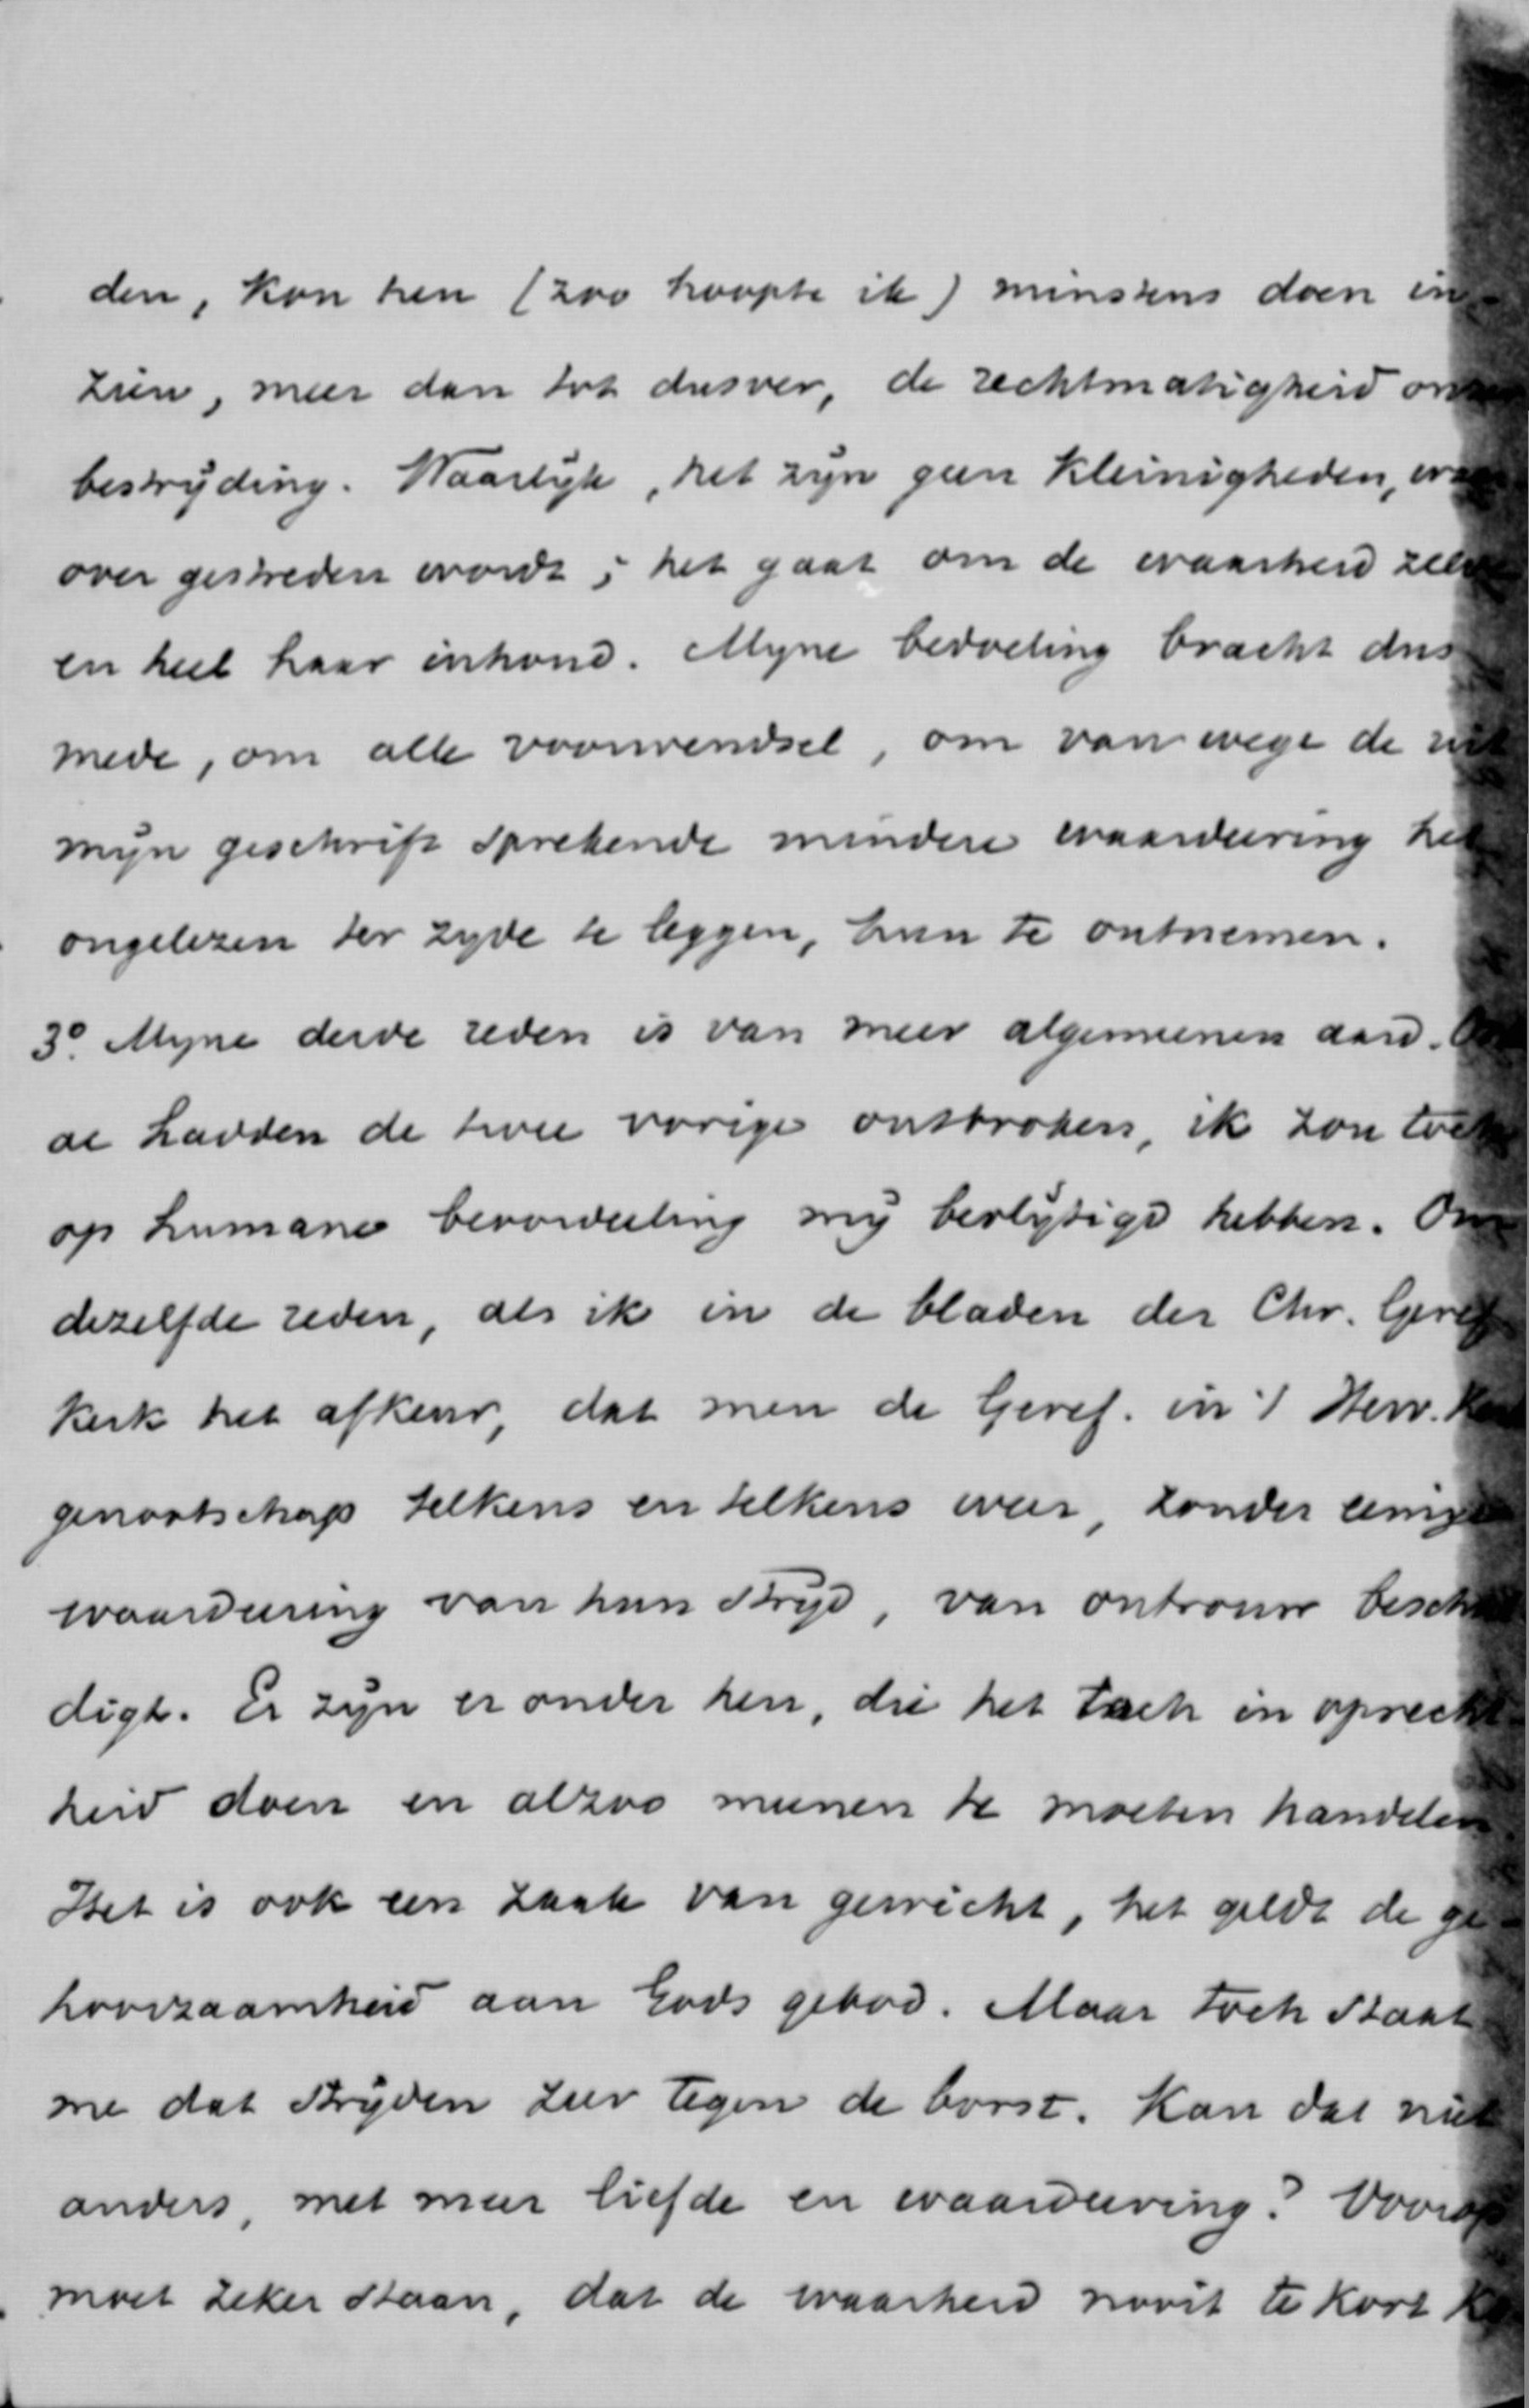 den, kon hen (zoo hoopte ik) minstens doen in-
zien, meer dan tot dusver, de rechtmatigheid
bestrijding. Waarlijk, het zijn geen kleinigheden,
over gestreden wordt; het gaat om de waarheid zelve
en heel haar inhoud. Mijne bedoeling bracht dus
mede, om alle voorwendsel, om van wege de uit
mijn geschrift sprekende mindere waardeering het
ongelezen ter zijde te leggen, hun te ontnemen.
3º. Mijne derde reden is van meer algemeenen aard.
al hadden de twee vorige ontbroken, ik zou toch
op humane beoordeeling mij bevlijtigd hebben. Om
dezelfde reden, als ik in de bladen der Chr. Geref
kerk het afkeur, dat men de Geref. in 't Herv.
genootschap telkens en telkens weer, zonder eenige
waardeering van hun strijd, van ontrouw besch
digt. Er zijn er onder hen, die het toch in oprecht-
heid doen en alzoo meenen te moeten handelen.
Het is ook een zaak van gewicht, het geldt de ge-
hoorzaamheid aan Gods gebod. Maar toch staat
me dat strijden zeer tegen de borst. Kan dat niet
anders, met meer liefde en waardeering? Voorop
moet zeker staan, dat de waarheid nooit te kort